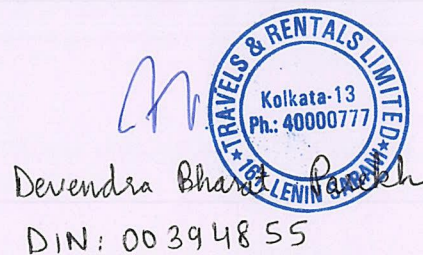 TRAVELS & RENTALS LIMITED
Kolkata-13
Ph.: 40000777
★ 163 LENIN SARANI ★
Devendra Bharat Parekh
DIN: 00394855